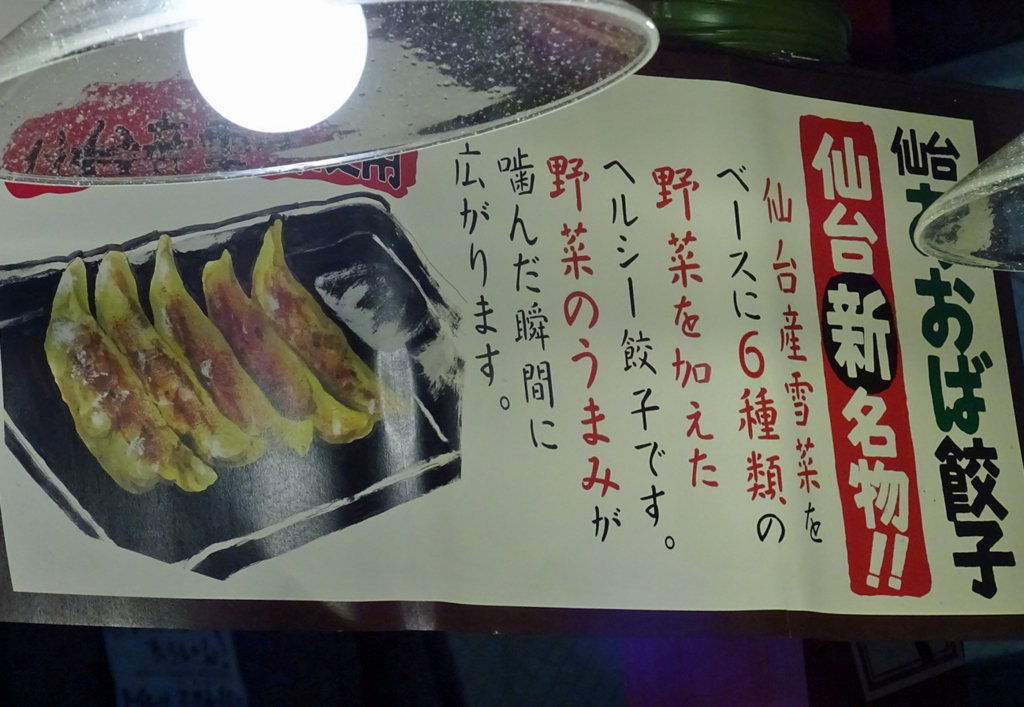 仙台あおば餃子
仙台新名物!!
仙台産雪菜を
ベースに6種類の
野菜を加えた
ヘルシー餃子です。
野菜のうまみが
噛んだ瞬間に
広がります。